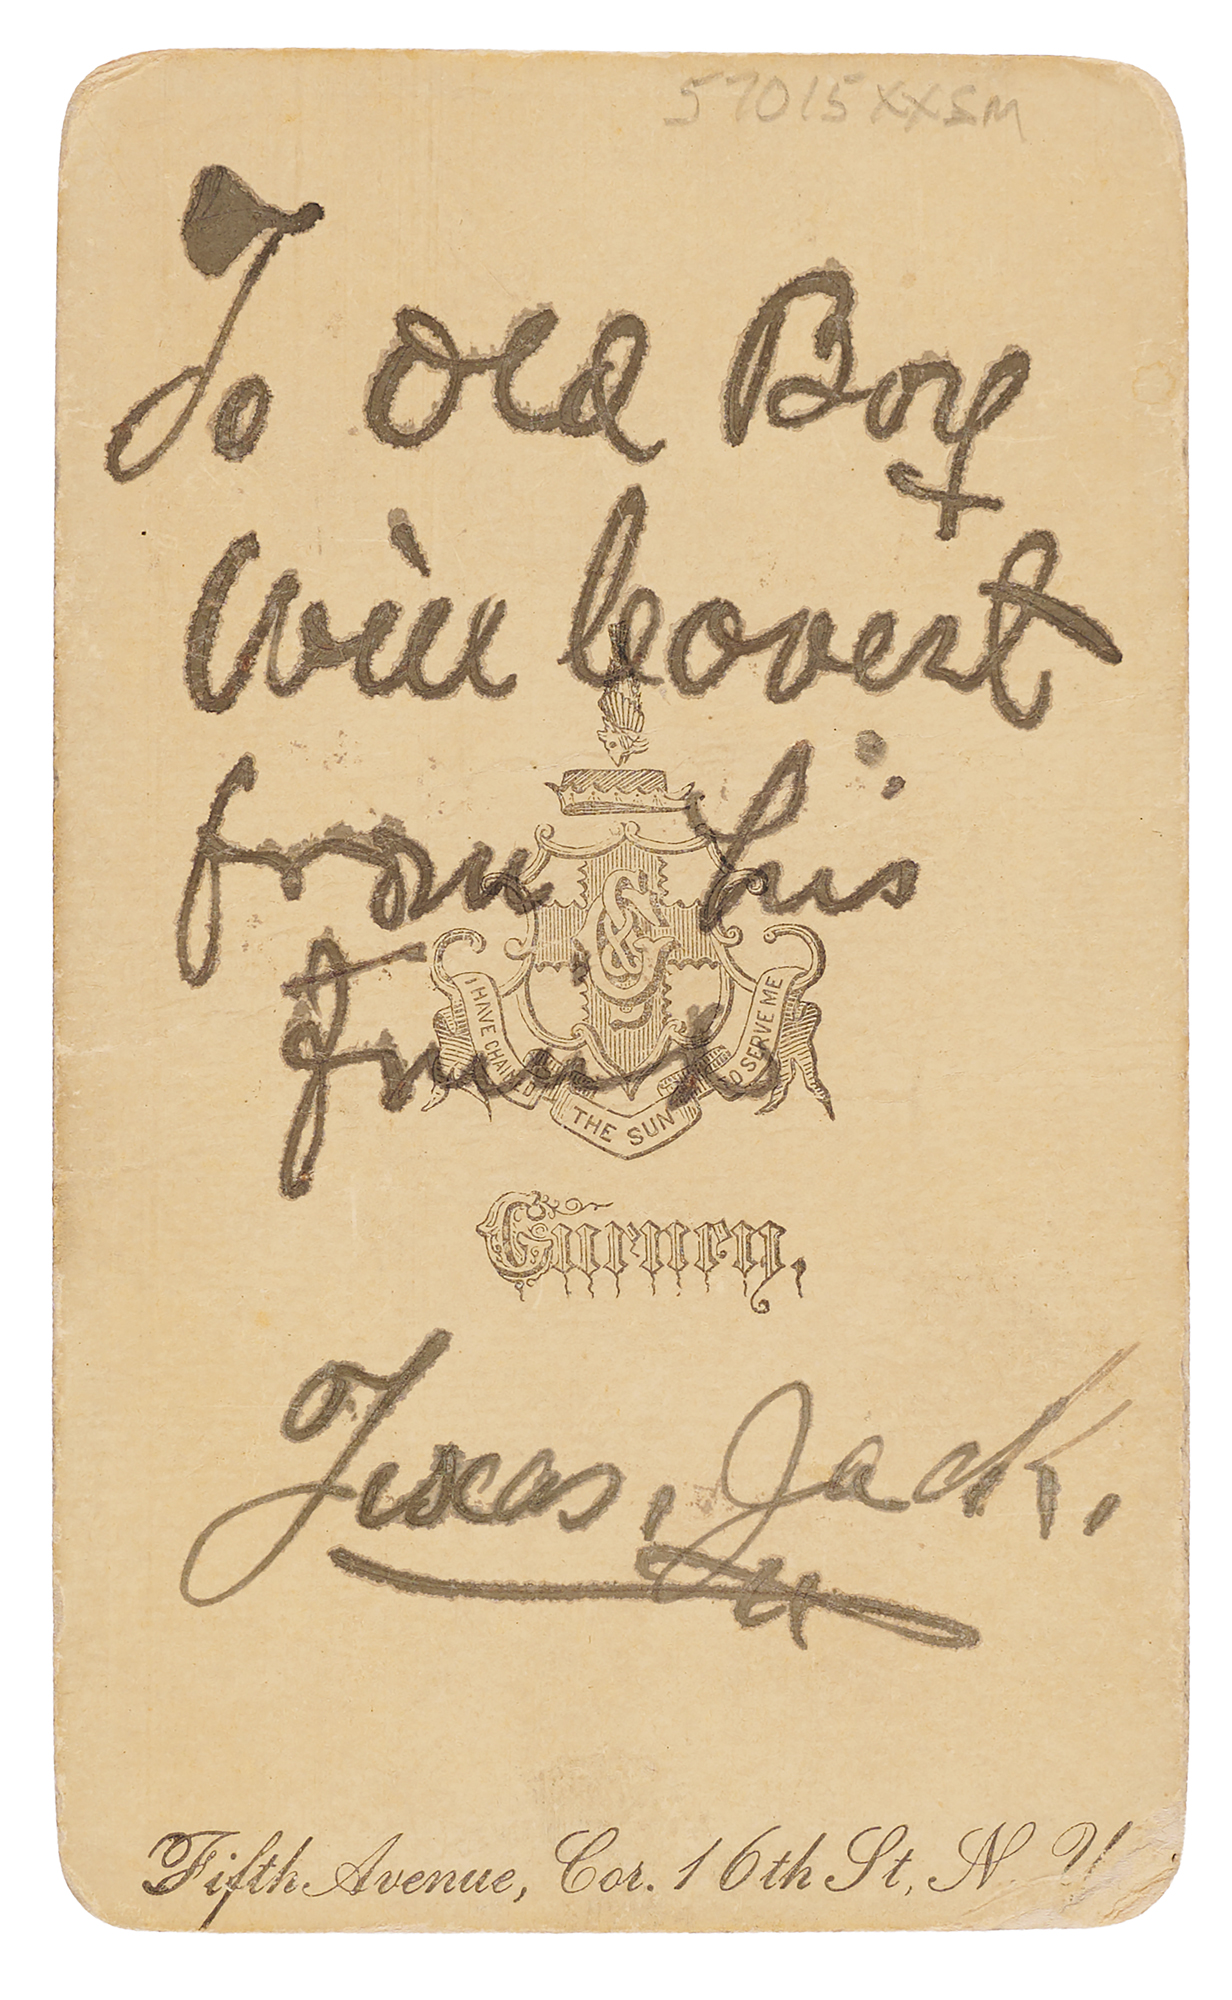 57015XXSM
To Old Boy
Will Covert
from his
Friend
G&S
I HAVE CHAINED THE SUN TO SERVE ME
Gurney,
Texas, Jack,
Fifth Avenue, Cor. 16th St, N. Y.